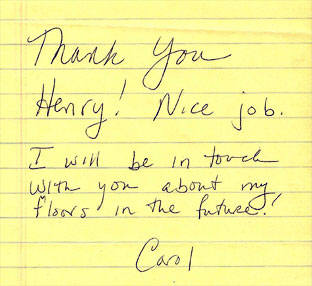 Thank You
Henry! Nice job.
I will be in touch
with you about my
floors in the future!
Carol